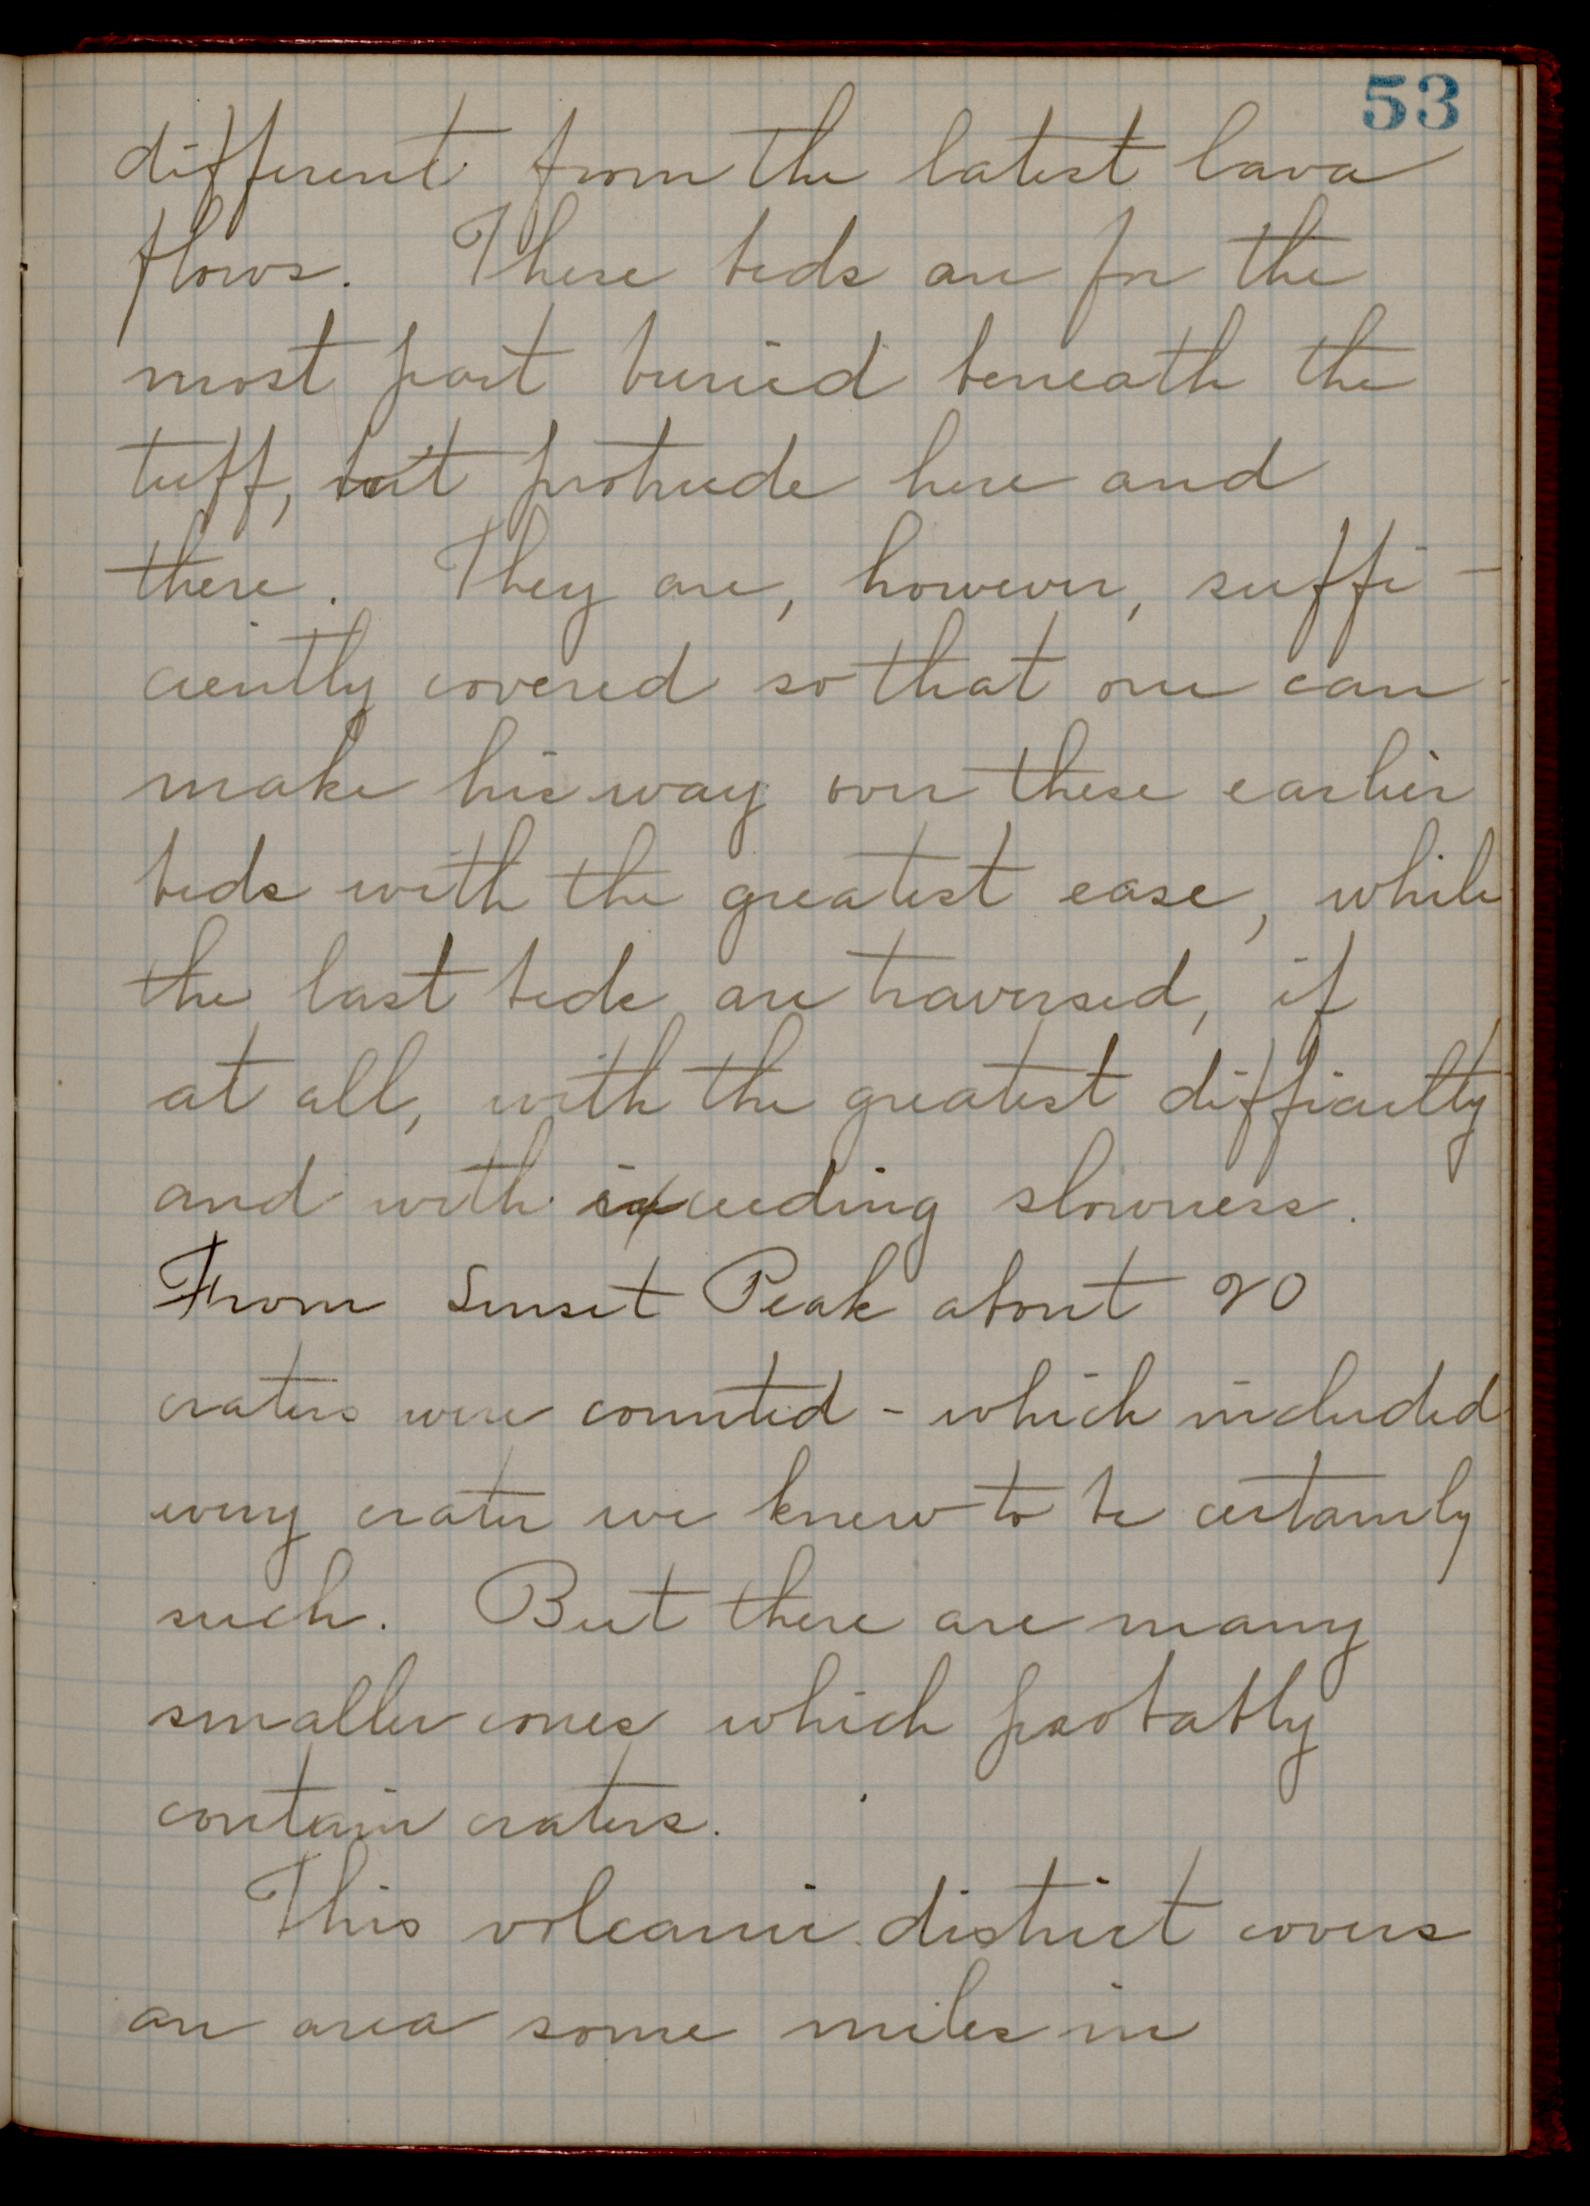 53
different from the latest lava
flows. These beds are for the
most part buried beneath the
tuff, but protrude here and
there. They are, however, suffi-
ciently covered so that one can
make his way over these earlier
beds with the greatest ease, while
the last beds are traversed, if
at all, with the greatest difficulty
and with exceeding slowness.
From Sunset Peak about 20
craters were counted - which included
every crater we knew to be certainly
such. But there are many
smaller cones which probably
contain craters.
This volcanic district covers
an area some miles in